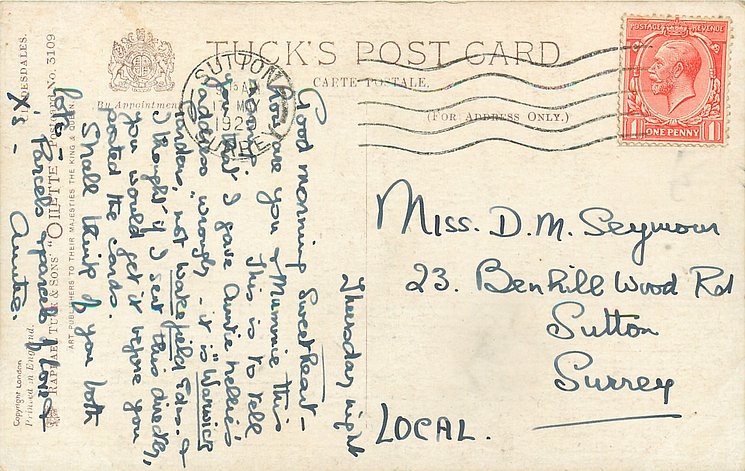 TUCK'S POST CARD
CARTE POSTALE.
(FOR ADDRESS ONLY.)
By Appointment
CLYDESDALES.
RAPHAEL TUCK & SONS' "OILETTE" POSTCARD No. 3109
ART PUBLISHERS TO THEIR MAJESTIES THE KING & QUEEN.
Copyright London
Printed in England.
SUTTON
SURREY
POSTAGE REVENUE
1 ONE PENNY 1
Thursday night
Good morning Sweetheart -
How are you & Mummie this
morning? This is to tell
you that I gave Auntie Nellie's
address wrongly - it is "Warwick
Gardens, not Wakefield Gdns. &
I thought if I sent this directly,
you would get it before you
posted the cards.
Shall think of you both
lots -
Parcels & parcels of love &
X's - Auntie.
Miss. D. M. Seymour
23. Benhill Wood Rd
Sutton
Surrey
LOCAL.